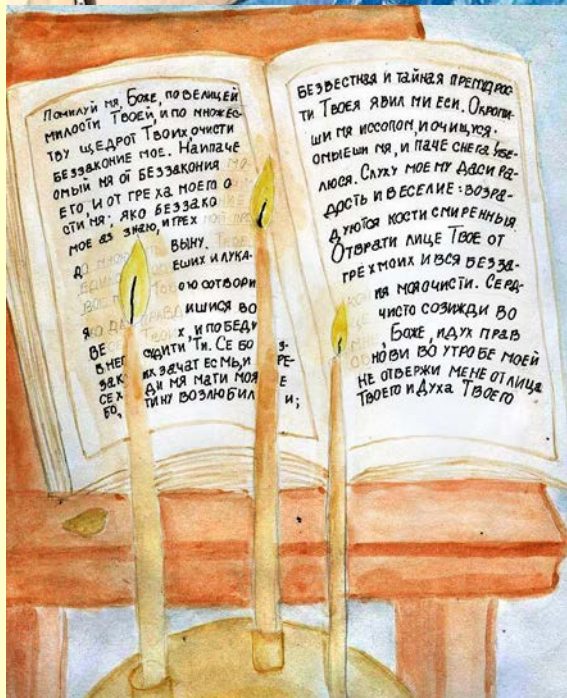 Помилуй мя, Боже, по велицей
милости Твоей, и по множес-
тву щедрот Твоих очисти
беззаконие мое. Наипаче
омый мя от беззакония мо
его, и от греха моего о
сти мя; яко беззако
мое аз знаю, и грех мой пр
до мною выну. Тебе
еших и лука-
ою сотвори
яко да оправд ишися во
Твоих, и победи
судити Ти. Се бо
зак их зачат есмь, и
сех ди мя мати моя
бо, тину возлюбил и;
безвестная и тайная премудрос-
ти Твоея явил ми еси. Окропи-
ши мя иссопом, и очищуся.
омыеши мя, и паче снега убе-
люся. Слуху моему даси ра-
дость и веселие: возра-
дуются кости смиренныя
Отврати лице Твое от
грех моих и вся безза-
кон ия моя очисти. Серд-
чисто созижди во
Боже, и дух прав
обнови во утробе моей
не отвержи мене от лица
Твоего и Духа Твоего